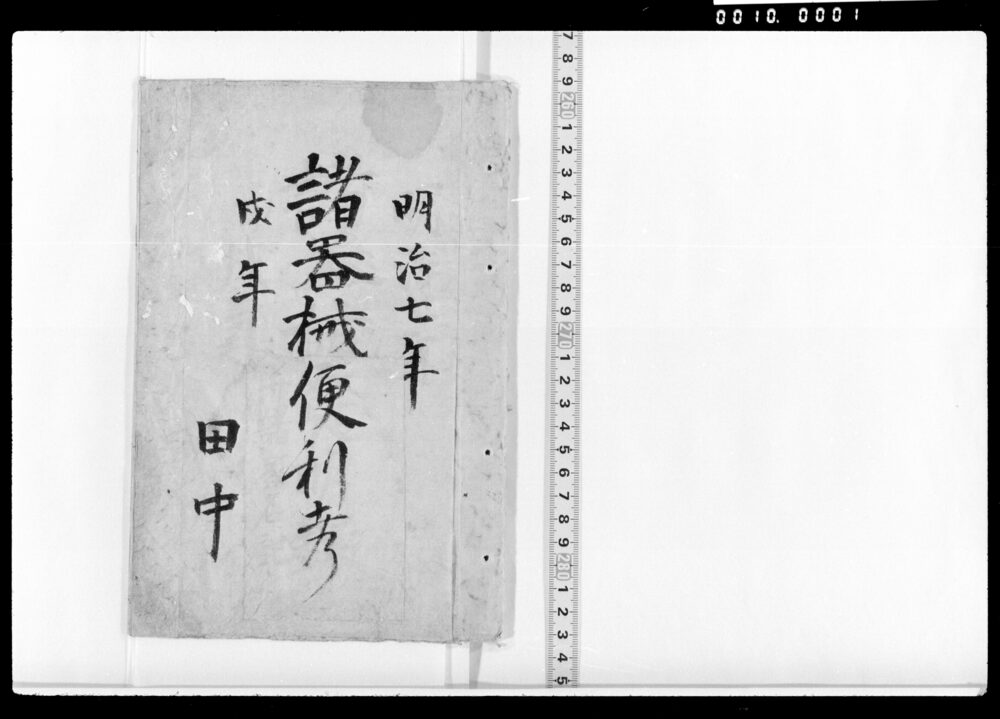 0010. 0001
明治七年
諸器械便利考
戌年
田中
7 8 9 260 1 2 3 4 5 6 7 8 9 270 1 2 3 4 5 6 7 8 9 280 1 2 3 4 5